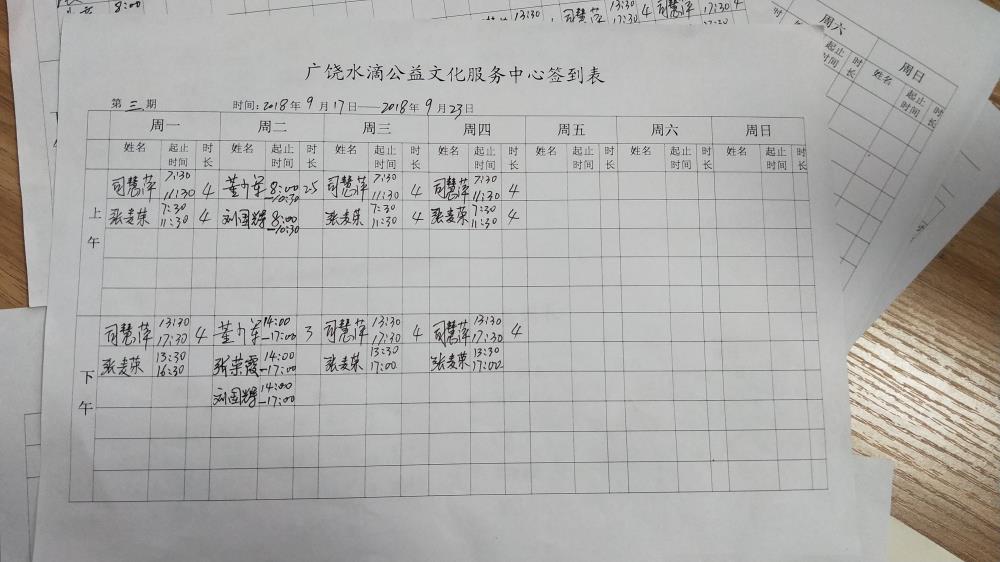 广饶水滴公益文化服务中心签到表
第 三 期 时间:2018年 9 月 17日——2018年 9 月 23日
周一 周二 周三 周四 周五 周六 周日
姓名 起止时间 时长 姓名 起止时间 时长 姓名 起止时间 时长 姓名 起止时间 时长 姓名 起止时间 时长 姓名 起止时间 时长 姓名 起止时间 时长
上午
司慧萍 7:30 11:30 4 8:00 —10:30 2.5 司慧萍 7:30 11:30 4 司慧萍 7:30 11:30 4
张麦荣 7:30 11:30 4 刘国辉 8:00 —10:30 张麦荣 7:30 11:30 4 张麦荣 7:30 11:30 4
下午
司慧萍 13:30 17:30 4 14:00 —17:00 3 司慧萍 13:30 17:30 4 司慧萍 13:30 17:30 4
张麦荣 13:30 16:30 张荣霞 14:00 —17:00 张麦荣 13:30 17:00 张麦荣 13:30 17:00
刘国辉 14:00 —17:00
8:00
13:30 司慧萍 17:30 4 司慧萍 17:30 4
周六 周日
起止时间 时长 姓名 起止时间 时长